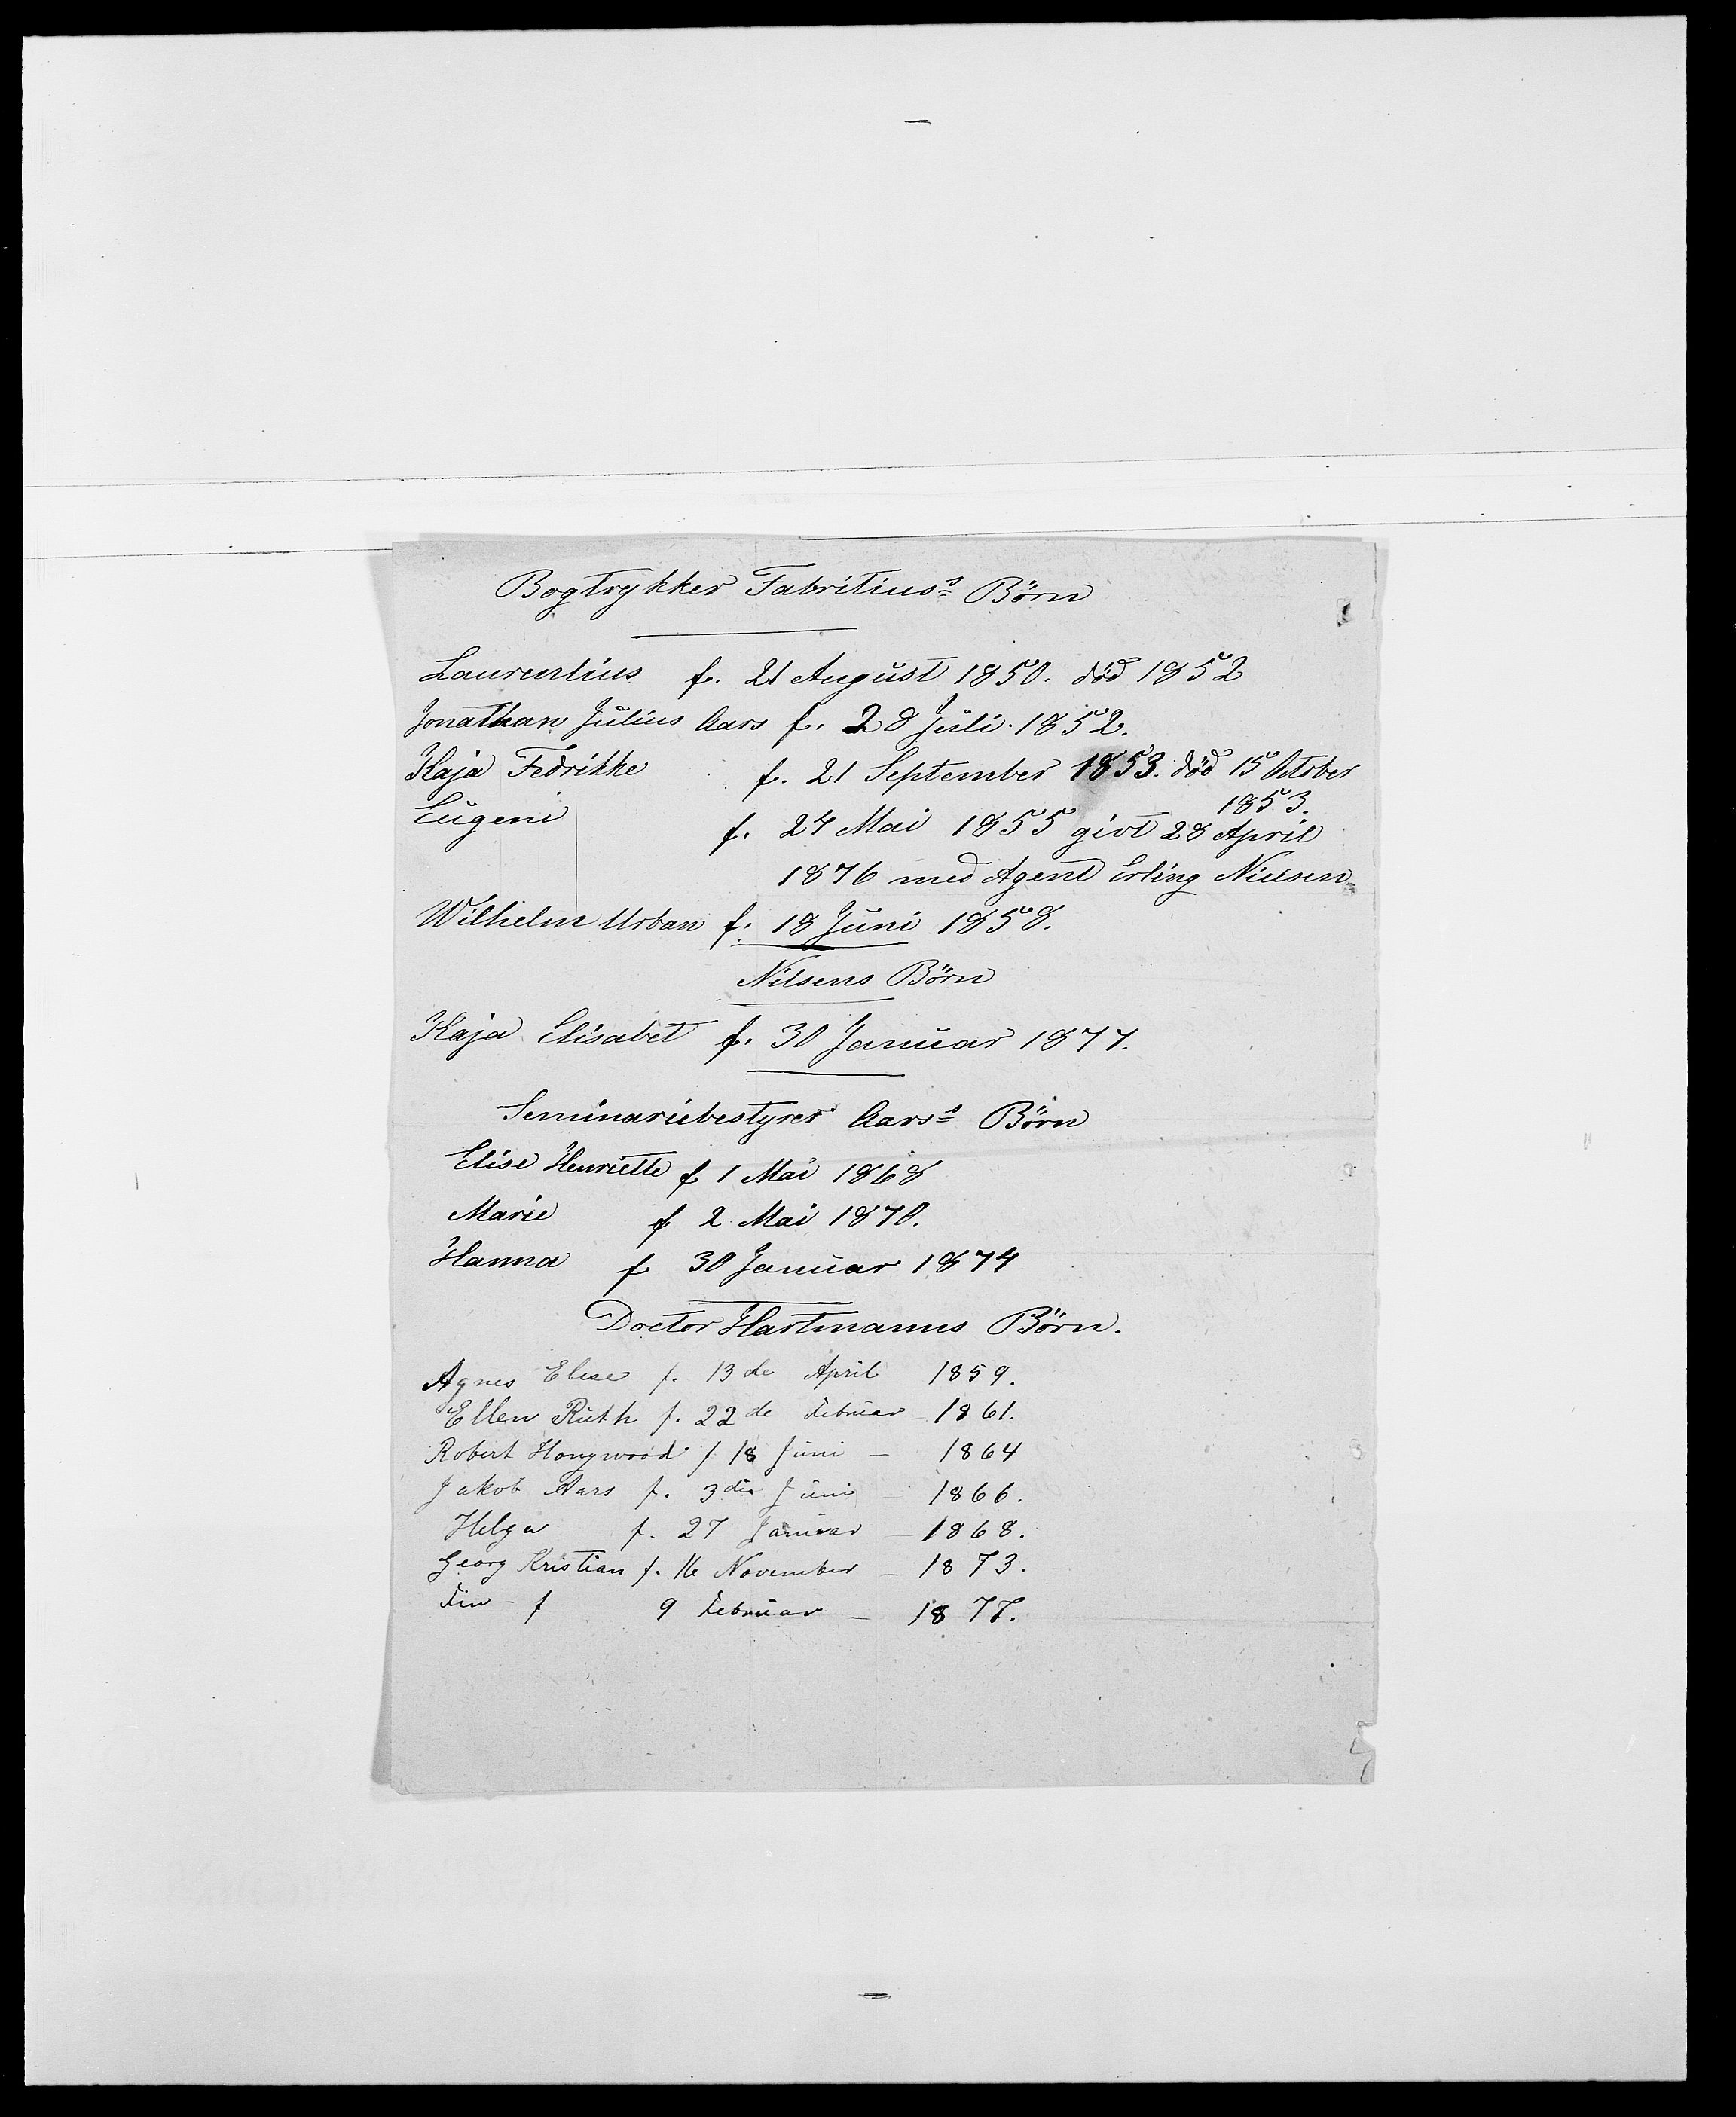 Bogtrykker Fabritius's Börn
Laurentius f. 21 August 1850. död 1852
Jonathan Julius Aars f. 28 Juli 1852.
Kaja Fedrikke f. 21 September 1853. död 15 October
1853.
Eugeni f. 24 Mai 1855 givt 28 April
1876 med Agent Erling Nielsen
Wilhelm Urban f. 18 Juni 1858.
Nilsens Börn
Kaja Elisabet f. 30 Januar 1877.
Seminariebestyrer Aars's Börn
Elise Henriette f 1 Mai 1868
Marie f 2 Mai 1870.
Hanna f 30 Januar 1874
Doctor Hartmanns Börn.
Agnes Elise f. 13de April 1859.
Ellen Ruth f. 22de Februar – 1861.
Robert Honywood f 18 Juni – 1864
Jakob Aars f. 3die Juni – 1866.
Helga f. 27 Januar – 1868.
Georg Kristian f. 16 November – 1873.
Fin – f 9 Februar – 1877.